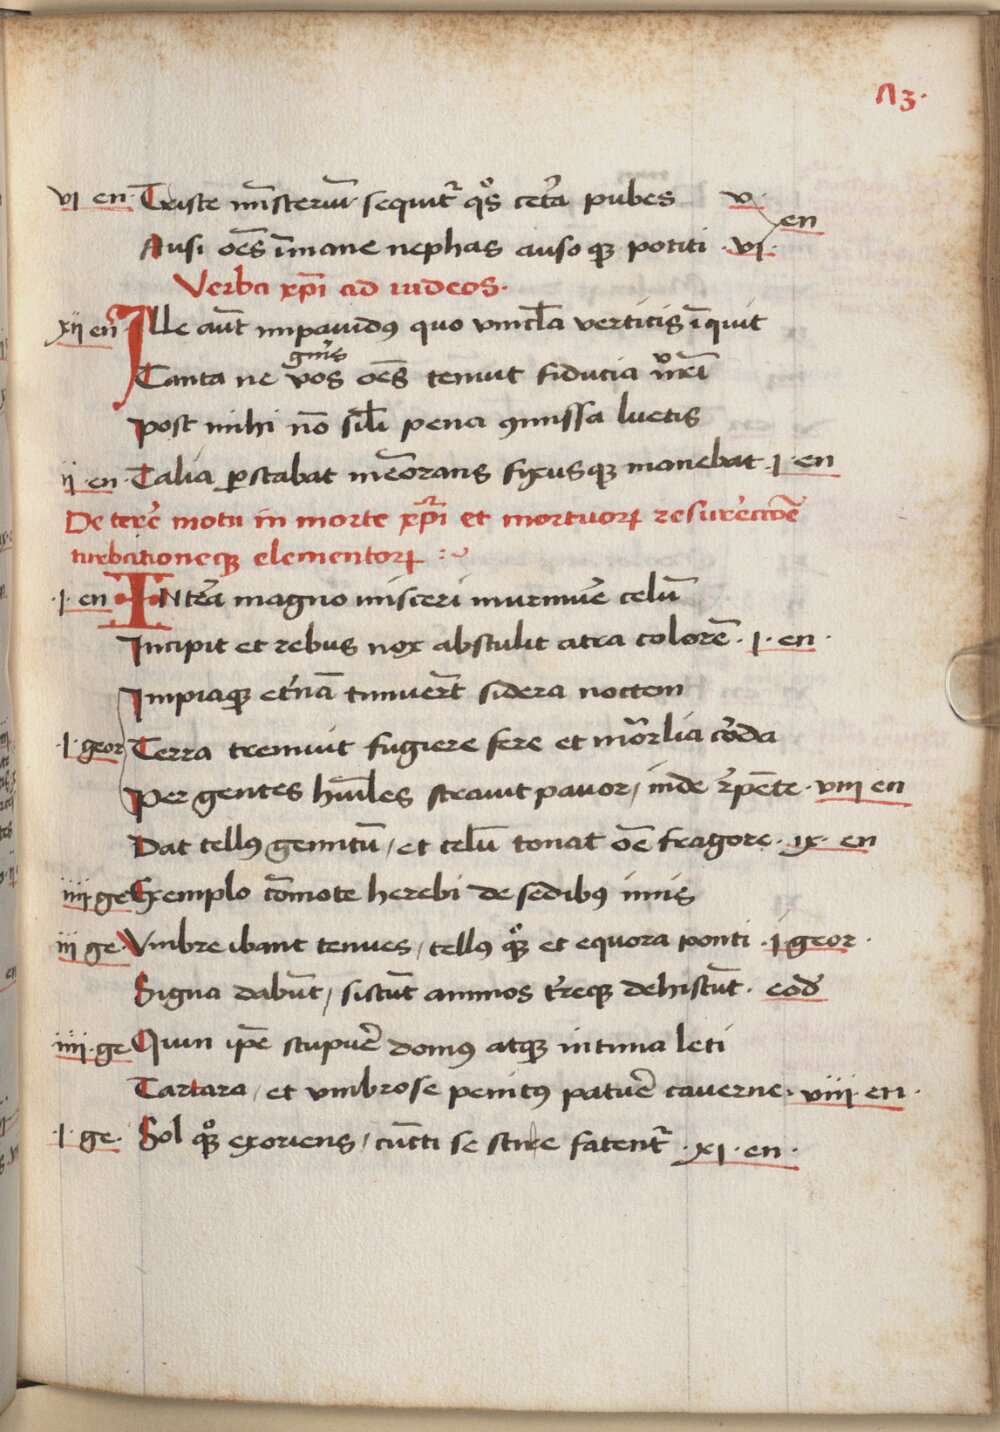 vi en· Triste ministeriũ· sequit᷑ qͦs cetẽa pubes v·
Ausi oẽs ĩmane nephas auso qꝫ potiti ·vi· en
Verba xp̃i ad iudeos·
xij en Ille aũt impauidꝰ quo vincl̃a verticis ĩquit
gñis
Tanta ne vos oẽs tenuit fiducia vr̃i
Post mihi nõ sil̃i pena ꝯmissa luetis
ij·en· Talia ꝑstabat meõrans fixusqꝫ manebat ·i·en
De terẽ motu in morte xp̃i et mortuoꝝ resurẽccõe
turbationeqꝫ elementoꝝ :~
·i·en INtẽa magno misceri murmuẽ celũ
Incipit et rebus nox abstulit atra colorẽ· i·en·
Impiaqꝫ et̃nã timuert̃ sidera noctem
·i·geor Terra tremuit fugiere fere et mõrlia corda
Per gentes hũiles strauit pauor / inde rp̃ẽte· viii en
Dat tellꝰ gemitũ / et celũ tonat oẽ fragore· ix· en
iiij·ge Extemplo cõmote herebi de sedibꝰ imis
iij ge· Vmbre ibant tenues / tellꝰ qͦꝫ et equora ponti ·i·geor·
Signa dabũt / sistũt amnos tr̃eqꝫ dehiscũt· eod̃
iiij·ge Quin ip̃e stupuẽ domꝰ atqꝫ intima leti
Tartara / et vmbrose penitꝰ patuẽ cauerne· viii·en·
·i·ge· Sol qͦꝫ exoriens / cũcti se scire fatent᷑ ·xi·en·